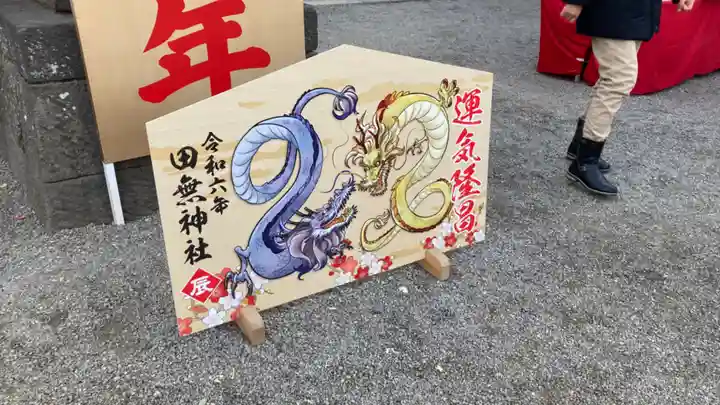 年
運気隆昌
令和六年
田無神社
辰